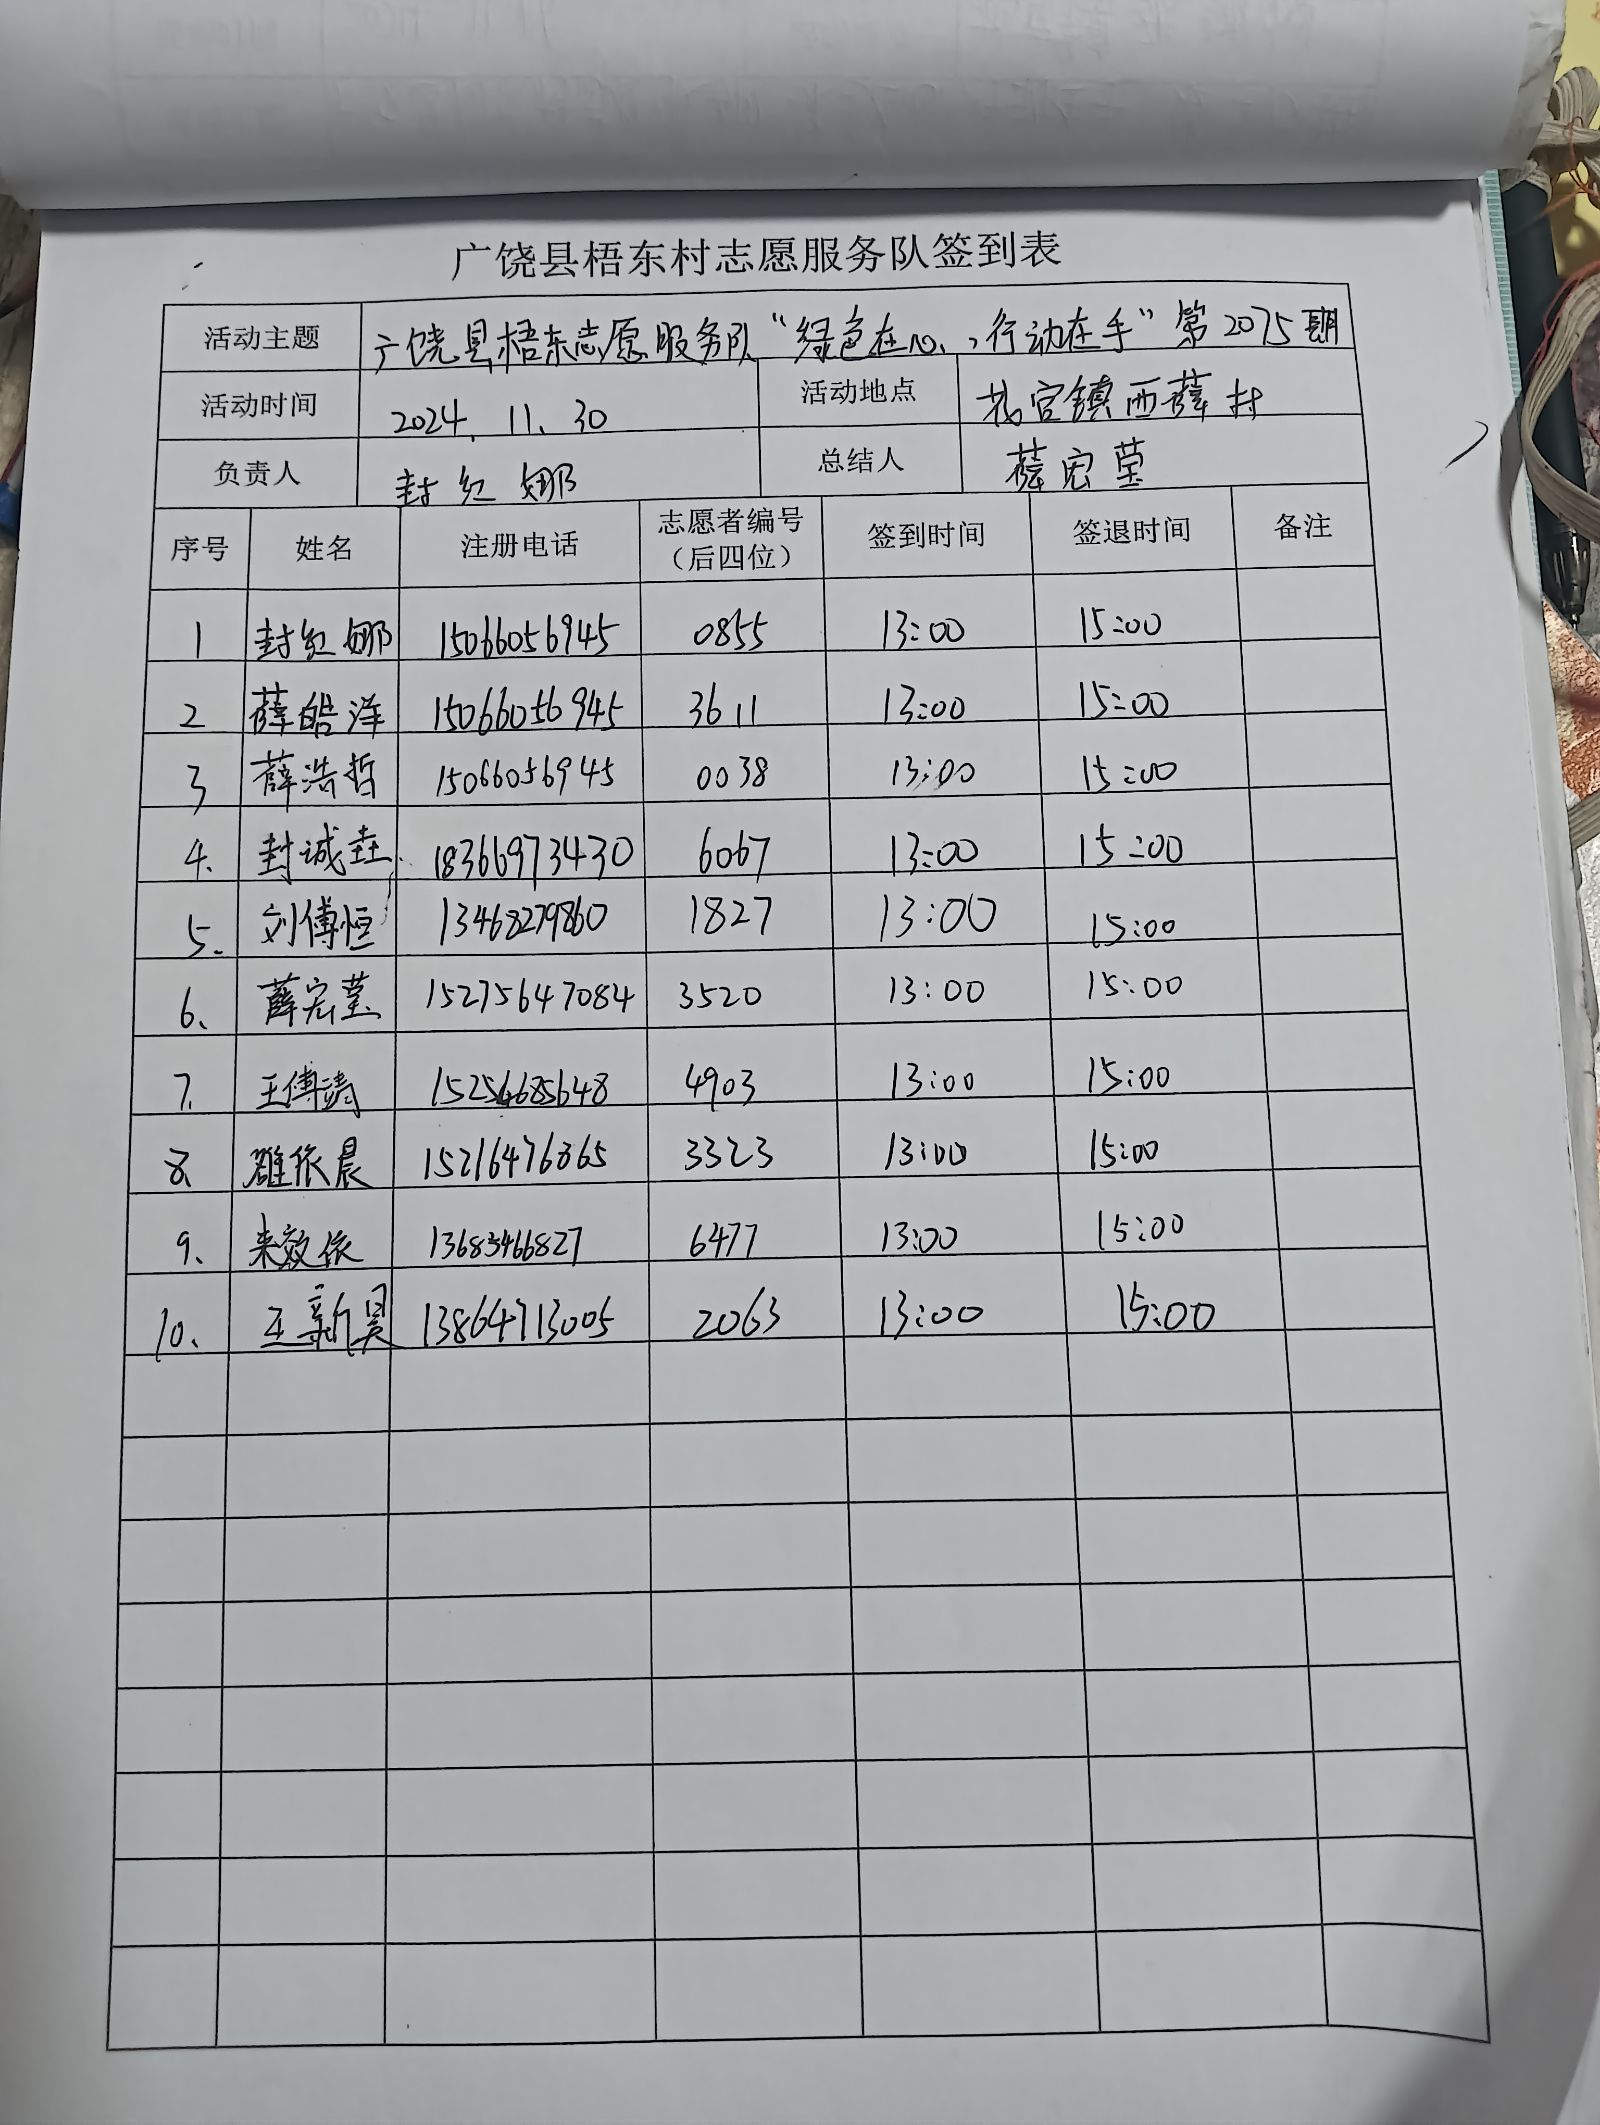 广饶县梧东村志愿服务队签到表
活动主题 广饶县梧东志愿服务队“绿色在心，行动在手”第2075期
活动时间 2024.11.30 活动地点 花官镇西薛村
负责人 封红娜 总结人 薛宏莹
序号 姓名 注册电话 志愿者编号（后四位） 签到时间 签退时间 备注
1 封红娜 15066056945 0855 13:00 15:00
2 薛皓洋 15066056945 3611 13:00 15:00
3 薛浩哲 15066056945 0038 13:00 15:00
4. 封诚垚 18366973430 6067 13:00 15:00
5. 刘傅恒 13468279860 1827 13:00 15:00
6、 薛宏莹 15275647084 3520 13:00 15:00
7. 王傅 4903 13:00 15:00
8. 依晨 15216476865 3323 13:00 15:00
9、 来效依 13685466827 6477 13:00 15:00
10、 王新昊 13864713005 2063 13:00 15:00